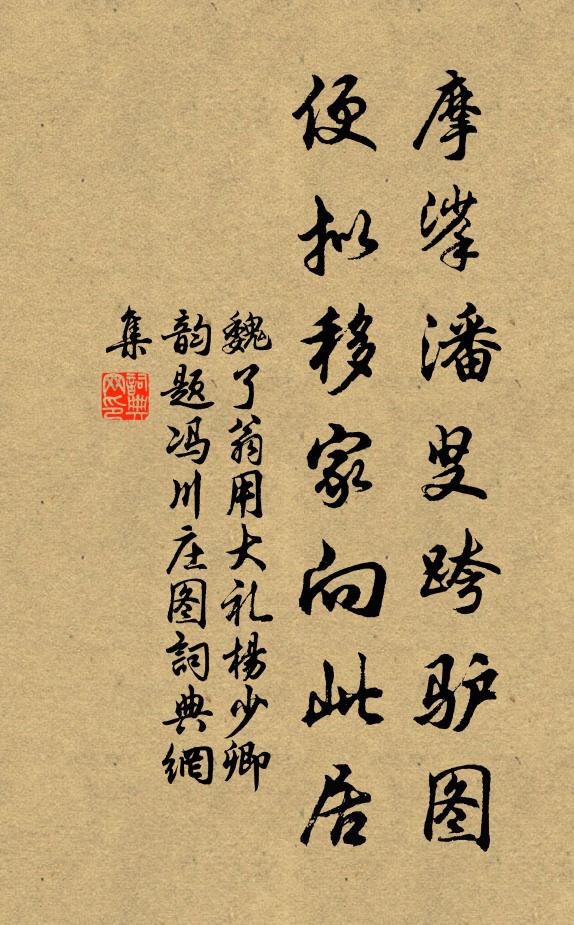 摩挲潘叟跨驴图
便拟移家向此居
魏了翁用大礼杨少卿
韵题冯川庄图词典網
集
詞典网印